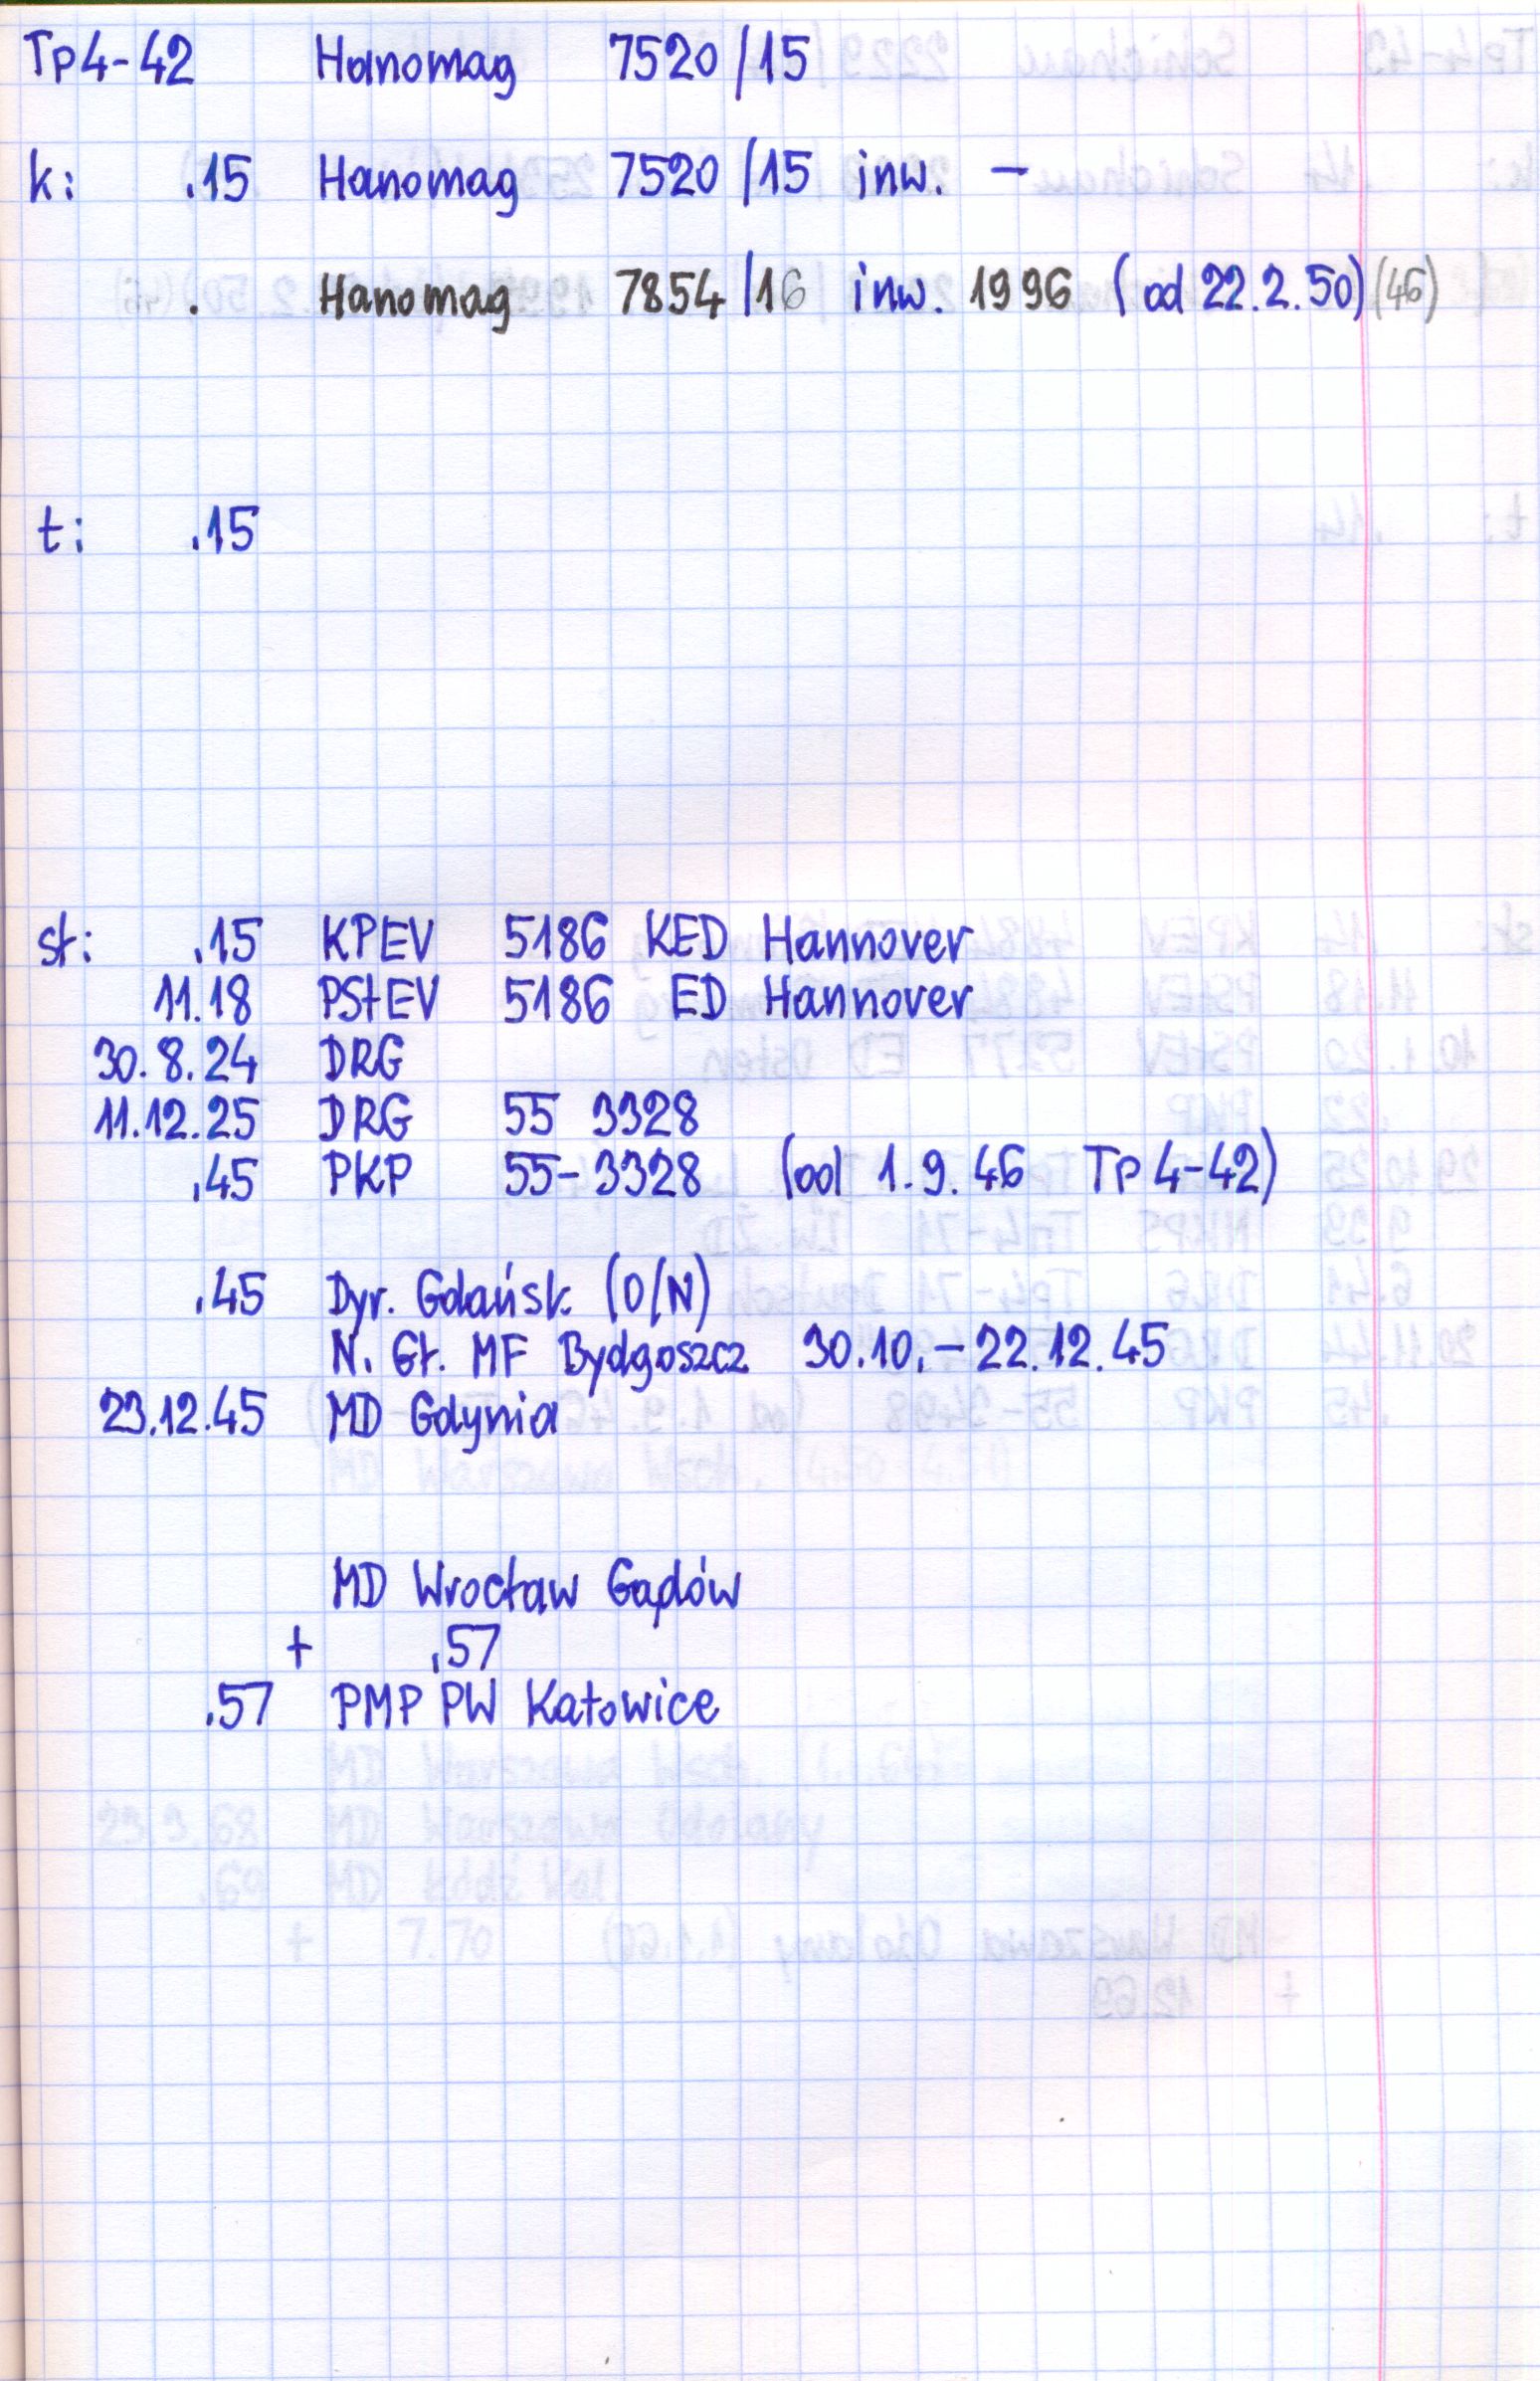 Tp4-42 Hanomag 7520/15
k: .15 Hanomag 7520/15 inw. -
. Hanomag 7854/16 inw. 1996 (od 22.2.50) (46)
t: .15
st: .15 KPEV 5186 KED Hannover
11.18 PStEV 5186 ED Hannover
30.8.24 DRG
11.12.25 DRG 55 3328
.45 PKP 55-3328 (od 1.9.46 Tp4-42)
.45 Dyr. Gdańsk (O/N)
N. Gł. MF Bydgoszcz 30.10.-22.12.45
23.12.45 MD Gdynia
MD Wrocław Gądów
+ .57
.57 PMP PW Katowice